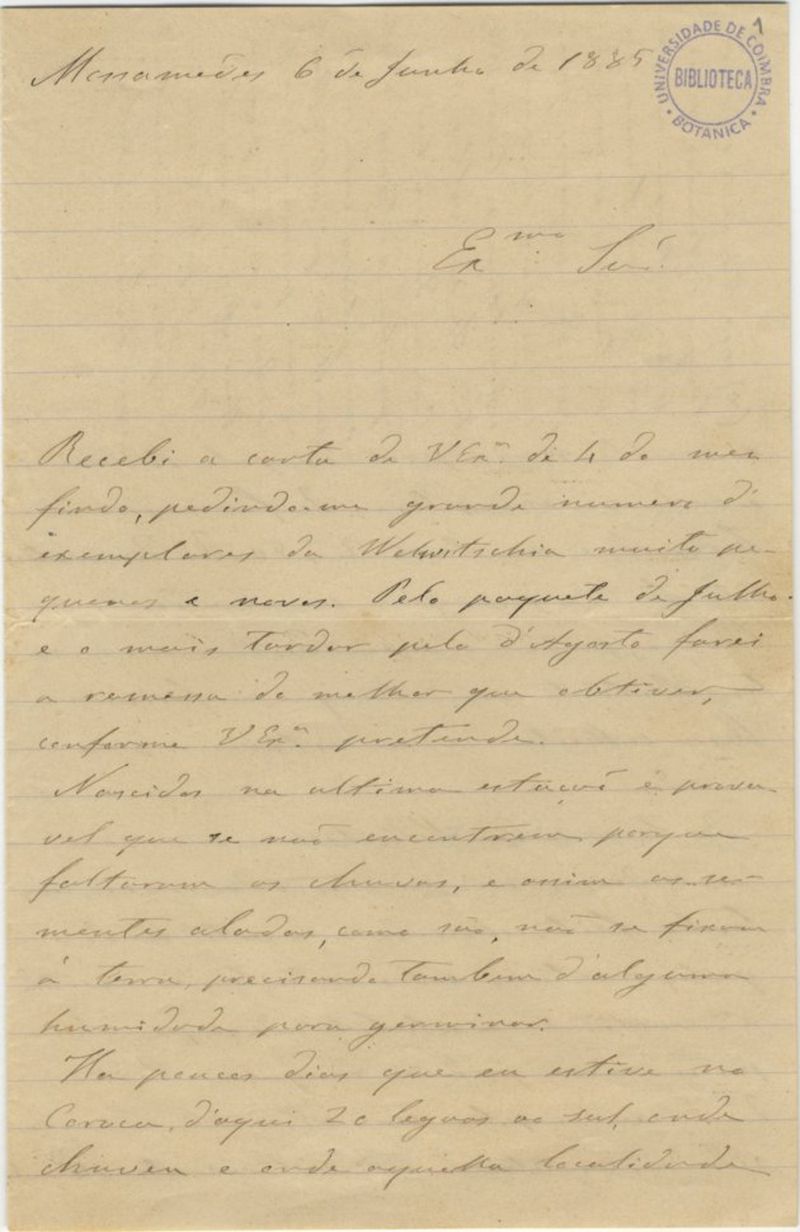 1
UNIVERSIDADE DE COIMBRA
BIBLIOTECA
BOTANICA
Mossamedes 6 de Junho de 1885
Exmo Snr.
Recebi a carta de V Exª. de 4 do mez
findo, pedindo-me grande numero d'
exemplares da Welwitschia muito pe-
quenos e novos. Pelo paquete de Julho
e o mais tardar pelo d'Agosto farei
a remessa do melhor que obtiver,
conforme V Exª. pretende.
Nascidas na ultima estação é prova-
vel que se não encontrem, porque
faltaram as chuvas, e assim as se-
mentes aladas, como são, não se fixam
á terra, precisando tambem d'alguma
humidade para germinar.
Ha poucos dias que eu estive no
Coroca, d'aqui 20 legoas ao sul, onde
choveu e onde aquella localidade